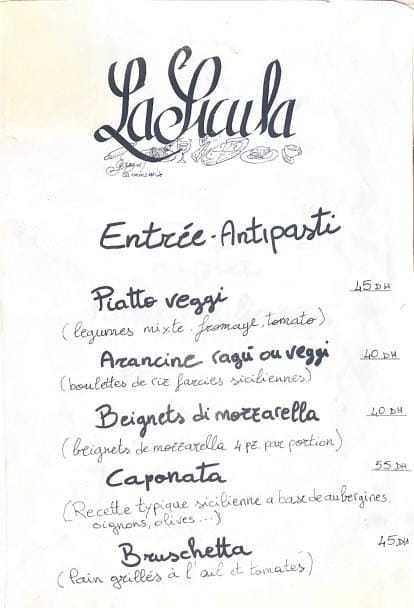 La Sicula
Entrée - Antipasti
Piatto veggi 45 DH
(legumes mixte. fromage, tomato)
Arancine ragú ou veggi 40 DH
(boulettes de riz farcies siciliennes)
Beignets di mozzarella 40 DH
(beignets de mozzarella 4 pz. par portion)
Caponata 55 DH
(Recette typique sicilienne a base de aubergines,
oignons, olives...)
Bruschetta 45 DH
(Pain grillés à l'ail et tomates)